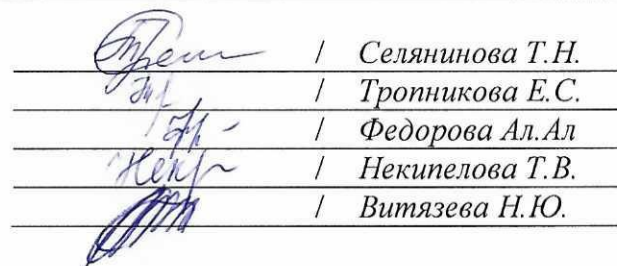 / Селянинова Т.Н.
/ Тропникова Е.С.
/ Федорова Ал.Ал
/ Некипелова Т.В.
/ Витязева Н.Ю.